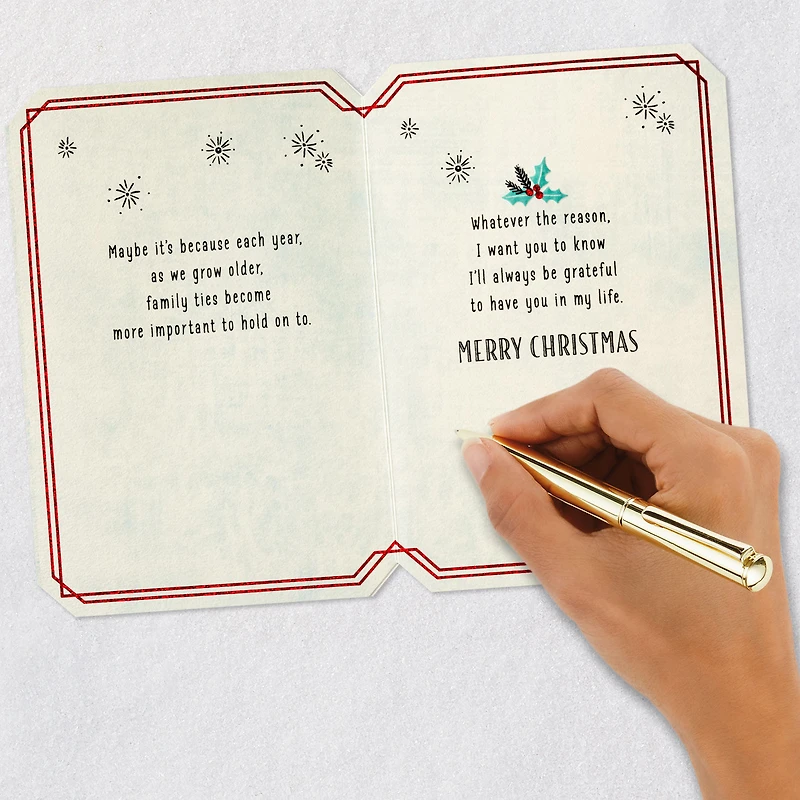 Maybe it's because each year,
as we grow older,
family ties become
more important to hold on to.
Whatever the reason,
I want you to know
I'll always be grateful
to have you in my life.
MERRY CHRISTMAS